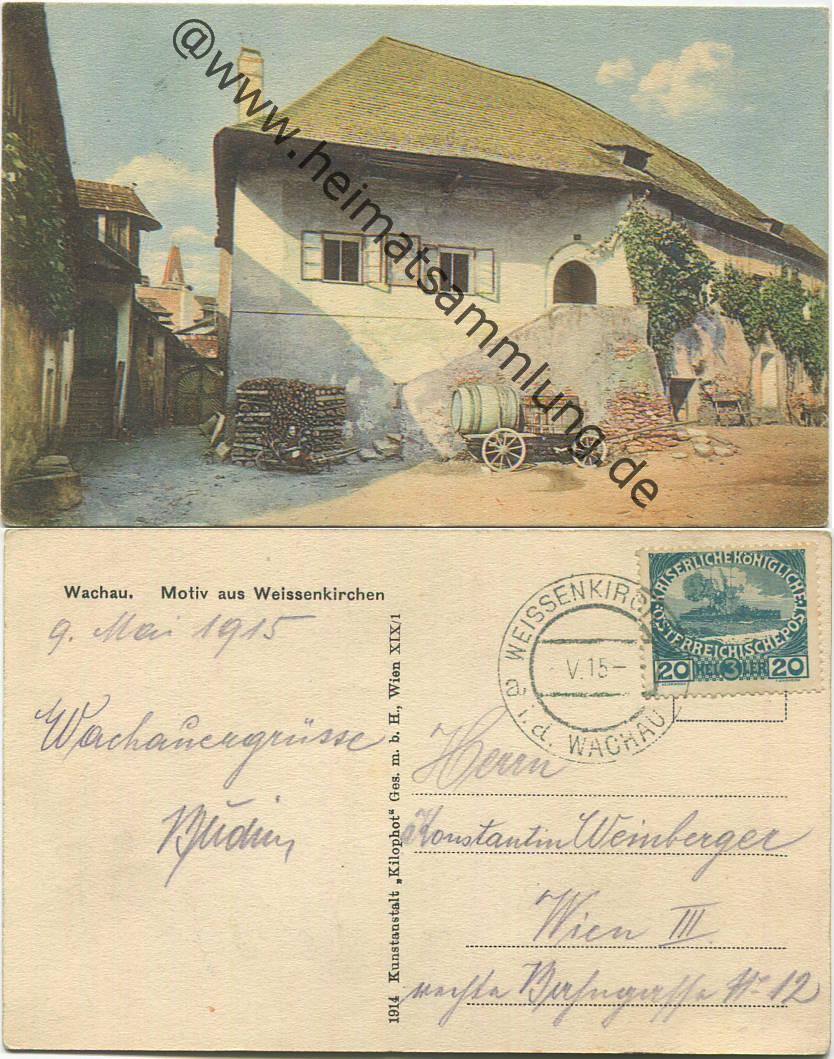 @www.heimatsammlung.de
Wachau. Motiv aus Weissenkirchen
9. Mai 1915
Wachauergrüsse
1914 Kunstanstalt „Kilophot“ Ges. m. b. H., Wien XIX/1
WEISSENKIRCH
a i.d. WACHAU
V.15-
KAISERLICHE KÖNIGLICHE
ÖSTERREICHISCHE POST
20 HEL 3 LER 20
Herrn
Konstantin Weinberger
Wien III.
rechte Bahngasse Nr 12